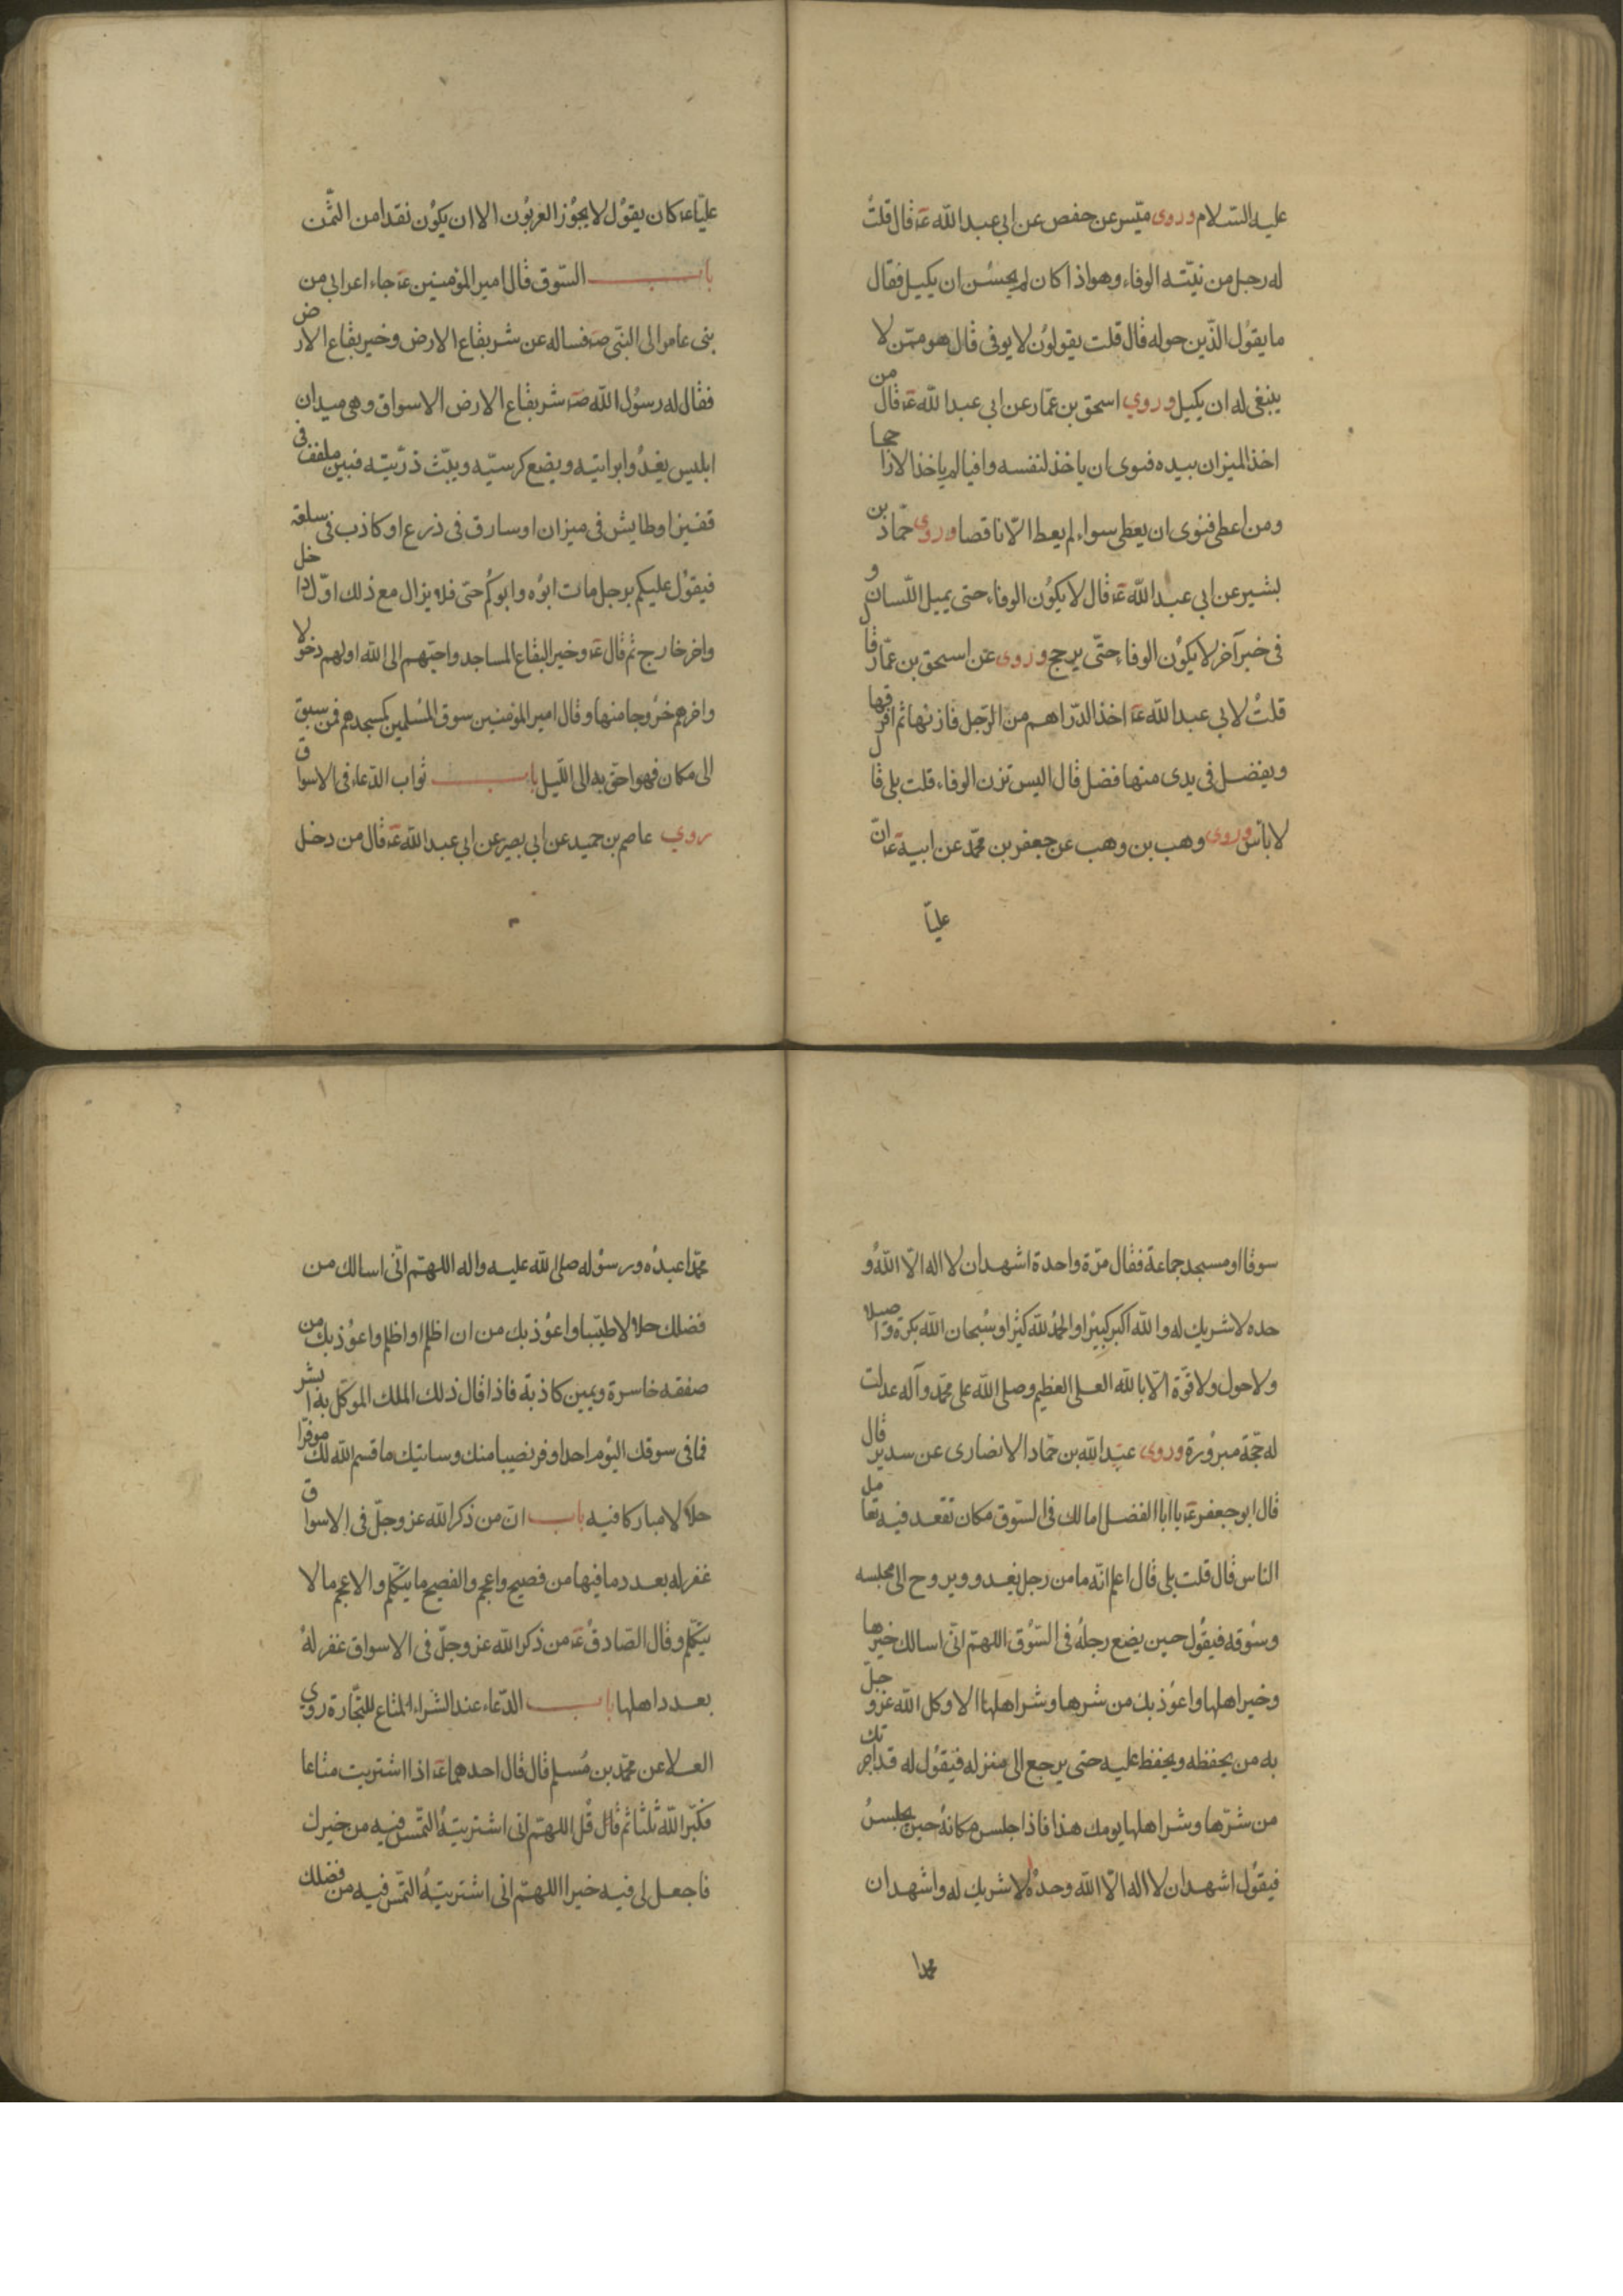 عليه السّلام وروى ميّسر عن حفص عن ابي عبد الله عۤ قال قلتُ
له رجل من نيّته الوفاء وهو اذا كان لم يحسُن ان يكيل فقال
ما يقوُل الذّين حوله قال قلت يقولوُن لا يوفى قال هو ممّن لا
ينبغى له ان يكيل وروي اسحق بن عمّار عن ابي عبد الله عۤ قال من
اخذ الميزان بيده فنوى ان ياخذ لنفسه وافيا لم ياخذ الا راجحا
ومن اعطى فنوى ان يعطى سواء لم يعط الّا ناقصا وروى حمّاد بن
بشير عن ابي عبد الله عۤ قال لا يكوُن الوفاء حتى يميل اللّسان و
فى خبر آخر لا يكوُن الوفاء حتّى يرجح وروى عن اسحق بن عمّار قال
قلتُ لابي عبد الله عۤ اخذ الدّراهم من الرّجل فازنها ثم افرقها
ويفضل فى يدى منها فضل قال اليس تزن الوفاء قلت بلى قال
لا باس وروى وهب بن وهب عن جعفر بن محمّد عن ابيه عۤ انّ
عليّا
عليّا عۤ كان يقوُل لا يجوُز العربوُن الا ان يكوُن نقدا من الثّمن
باب السّوق قال امير المؤمنين عۤ جاء اعرابي من
بنى عامر الى النبّى صۤ فساله عن شر بقاع الارض وخير بقاع الارض
فقال له رسوُل الله صۤ شر بقاع الارض الاسواق وهى ميدان
ابليس يغدُوا برايته ويضع كرسيّه ويبّث ذرّيته فبين ملفف فى
قفيز او طايش فى ميزان او سارق فى ذرع او كاذب فى سلعة
فيقوُل عليكم برجل مات ابوُه وابوكُم حتى فلا يزال مع ذلك اوّل داخل
واخر خارج ثم قال عۤ وخير البقاع المساجد واحبّهم الى الله اولهم دخولا
واخرهم خرُوجا منها وقال امير المؤمنين سوق المسُلمين كمسجدهم فمن سبق
الى مكان فهو احقّ به الى اللّيل باب ثواب الدّعاء فى الاسواق
روي عاصم بن حميد عن ابي بصير عن ابي عبد الله عۤ قال من دخل
سوقا او مسجد جماعة فقال مرّة واحدة اشهد ان لا اله الّا اللهُ و
حده لا شريك له والله اكبر كبيرا والحمدُ لله كثيرا وسُبحان الله بكرة واصيلا
ولا حول ولا قوّة الّا بالله العلى العظيم وصلى الله على محمّد وآله عدلت
له حجّة مبرُورة وروى عبد الله بن حمّاد الانصارى عن سدير قال
قال ابو جعفر عۤ يا ابا الفضل اما لك فى السّوق مكان تقعد فيه تعامل
الناس قال قلت بلى قال اعلم انّه ما من رجل يغدو ويروح الى مجلسه
وسُوقه فيقوُل حين يضع رجلهُ فى السّوُق اللهمّ انّى اسالك خيرها
وخير اهلها واعوُذ بك من شرها وشر اهلها الا وكل الله عز وجلّ
به من يحفظه ويحفظ عليه حتى يرجع الى منزله فيقوُل له قد اجرتك
من شرّها وشر اهلها يومك هذا فاذا جلس مكانهُ حين يجلسُ
فيقوُل اشهد ان لا اله الّا الله وحدهُ لا شريك له واشهد ان
محمدا
محمّدا عبدُه ورسوُله صلى الله عليه واله اللهمّ انّى اسالك من
فضلك حلالا طيّبا واعوُذ بك من ان اظلم او اظلم واعوُذ بك من
صفقه خاسرة ويمين كاذبة فاذا قال ذلك الملك الموكّل به ابشر
فما فى سوقك اليوُم احد اوفر نصيبا منك وساتيك ما قسم الله لك موفّرا
حلالا مباركا فيه باب انّ من ذكر الله عز وجلّ فى الاسواق
غفر له بعدد ما فيها من فصيح واعجم والفصيح ما يتكّلم والاعجم ما لا
يتكّلم وقال الصّادقُ عۤ من ذكر الله عز وجلّ فى الاسواق غفر لهُ
بعدد اهلها باب الدّعاء عند الشراء المتاع للتّجارة روي
العلا عن محمّد بن مُسلم قال قال احدهما عۤ اذا اشتريت متاعا
فكبّر الله ثلثا ثم قال قُل اللهمّ انى اشتريتهُ التمّس فيه من خيرك
فاجعل لى فيه خيرا اللهمّ انى اشتريتهُ التمّس فيه من فضلك